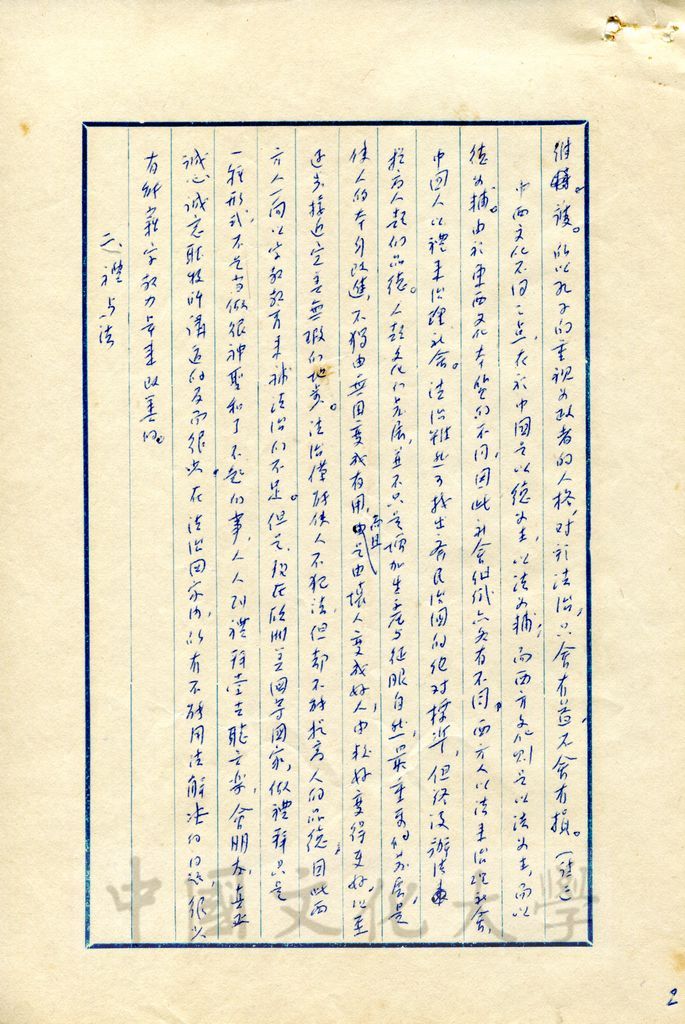 維護。所以孔子的重視為政者的人格,對於法治,只會有益,不會有損。(註三
中西文化不同之點,在於中國是以德為主,以法為輔;而西方文化則是以法為主,而以
德為輔。由於東西文化本質的不同,因此社會組織亦頗有不同。西方人以法來治理社會,
中國人以禮來治理社會。法治雖然可找出齊民治國的絕對標準,但終沒辦法
提高人類的品德。人類文化的發展,並不只是增加生產與征服自然,最重要的發展是
使人的本身改進,不獨由無用變成有用,而且是由壞人變成好人,由較好變得更好,以至
逐步接近完善無瑕的地步。法治僅能使人不犯法,但都不能提高人的品德,因此西
方人一向以宗教教育來補法治的不足。但是,現在歐洲美國等國家,做禮拜只是
一種形式,不是當做很神聖和了不起的事,人人到禮拜堂去聽音樂,會朋友,真正
誠心誠意聽牧師講道的反而很少。在法治國家內,所有不能用法解決的問題,很少
有能藉宗教力量來改善的。
二、禮與法
中國文化大學
2